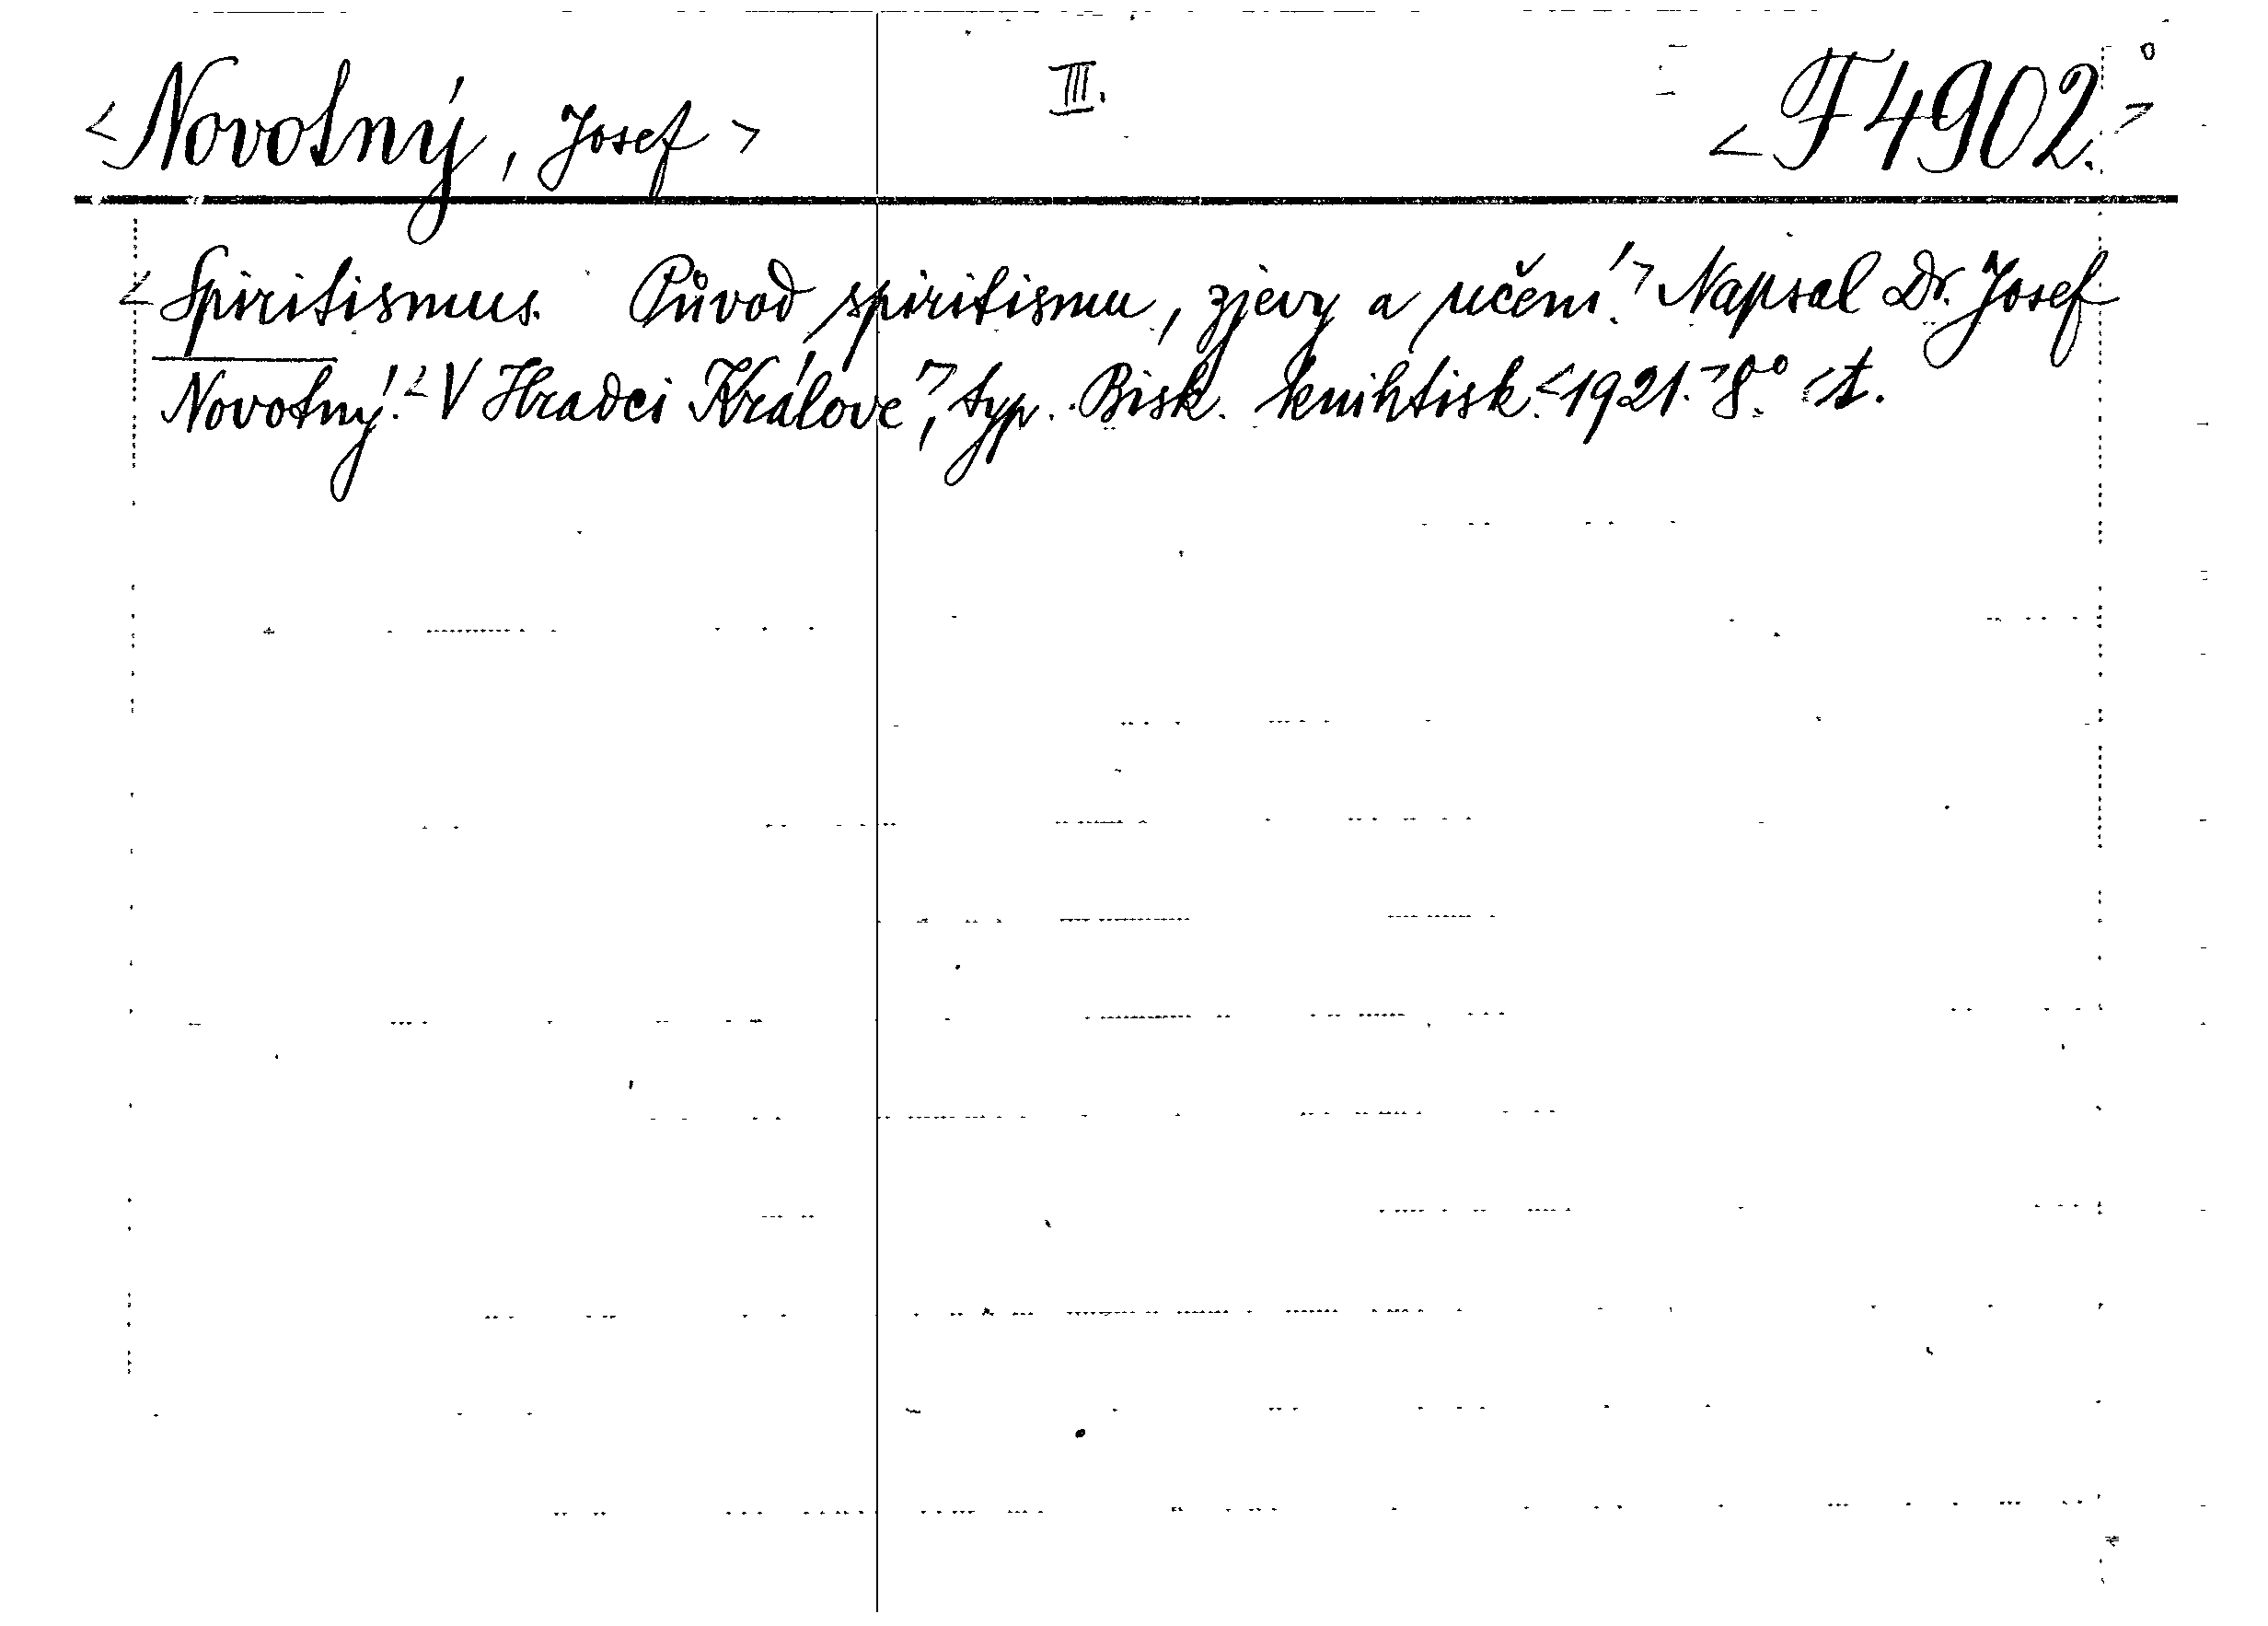 <Novotný, Josef> III. <F 4902.>
<Spiritismus. Původ spiritismu, zjevy a učení.> Napsal Dr. Josef
Novotný. <V Hradci Králové>, typ. Bisk. knihtisk. <1921.> 8° <t.